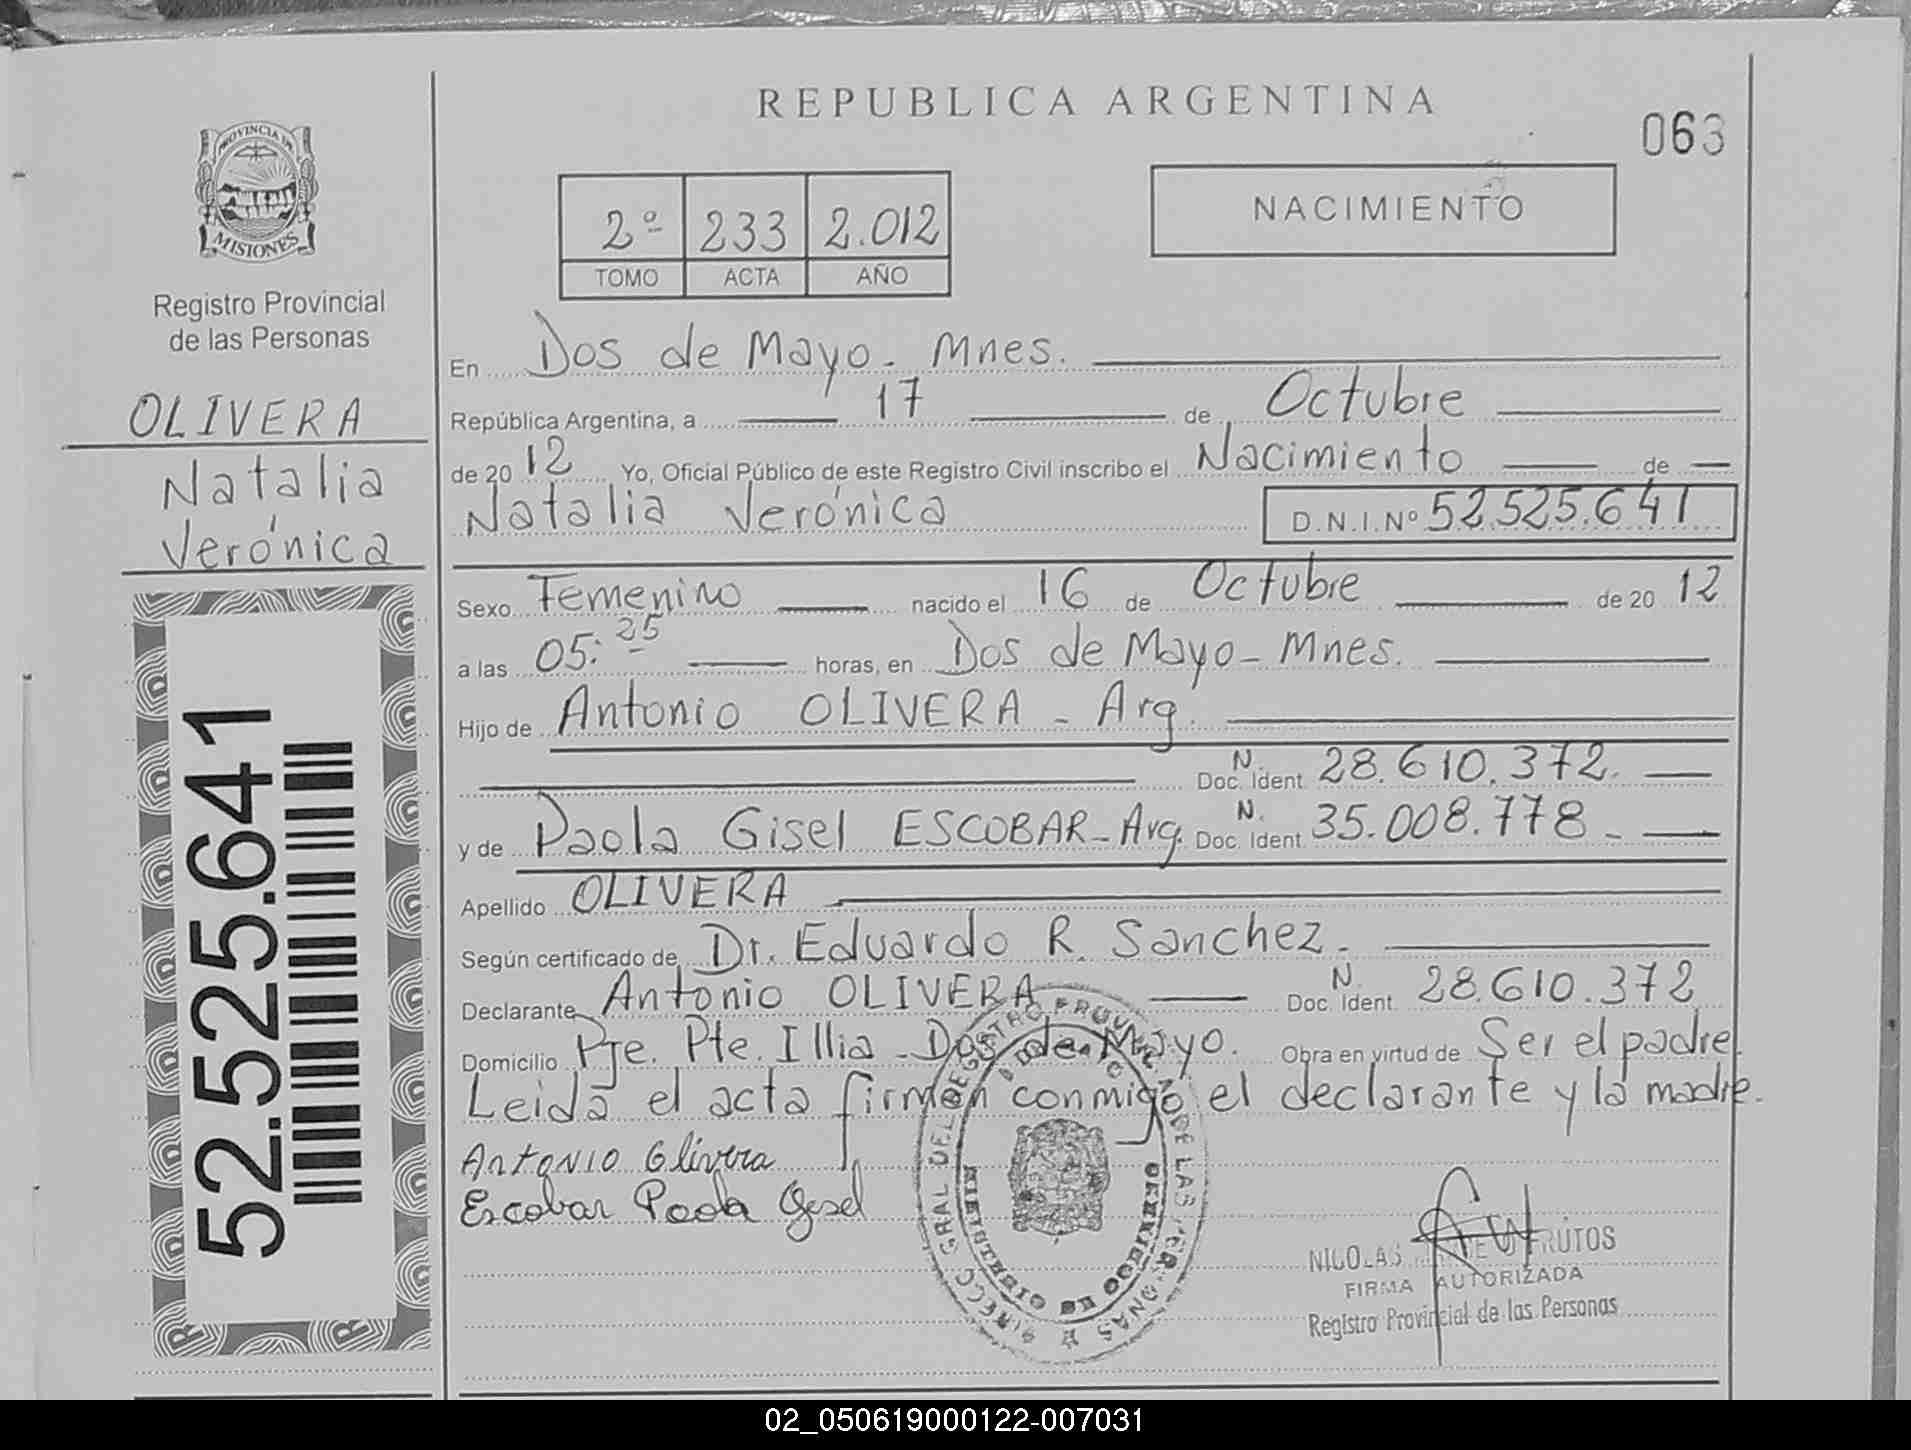 REPUBLICA ARGENTINA
063
PROVINCIA DE
MISIONES
Registro Provincial
de las Personas
OLIVERA
Natalia
Verónica
52.525.641
2º 233 2.012
TOMO ACTA AÑO
NACIMIENTO
En Dos de Mayo - Mnes.
República Argentina, a 17 de Octubre
de 20 12 Yo, Oficial Público de este Registro Civil inscribo el Nacimiento de
Natalia Verónica D.N.I.Nº 52.525.641
Sexo Femenino nacido el 16 de Octubre de 20 12
a las 05:25 horas, en Dos de Mayo - Mnes.
Hijo de Antonio OLIVERA - Arg.
Doc. Ident. N. 28.610.372.
y de Paola Gisel ESCOBAR - Arg. Doc. Ident. N. 35.008.778 -
Apellido OLIVERA
Según certificado de Dr. Eduardo R. Sanchez.
Declarante Antonio OLIVERA Doc. Ident. N. 28.610.372
Domicilio Pje. Pte. Illia - Dos de Mayo. Obra en virtud de Ser el padre.
Leida el acta firman conmigo el declarante y la madre.
Antonio Olivera
Escobar Paola Gisel
DIRECC GRAL DEL REGISTRO PROVINCIAL DE LAS PERSONAS
MINISTERIO DE GOBIERNO
NICOLAS FRUTOS
FIRMA AUTORIZADA
Registro Provincial de las Personas
02_050619000122-007031